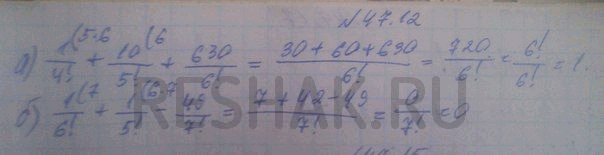 №47.12
а) 1(5·6/4! + 10(6/5! + 630/6! = (30+60+630)/6! = 720/6! = 6!/6! = 1.
б) 1(7/6! + 1(6·7/5! - 49/7! = (7+42-49)/7! = 0/7! = 0
RESHAK.RU